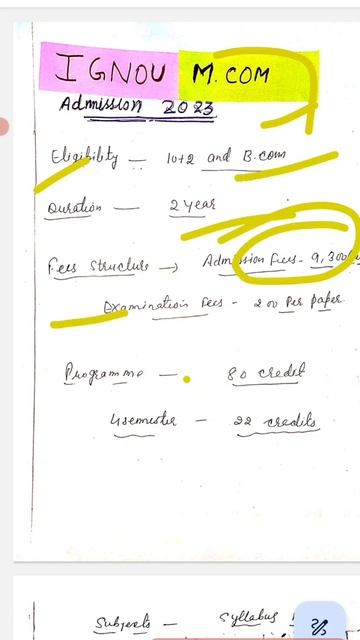 IGNOU M.COM
Admission 2023
Eligibility — 10+2 and B.com
Duration — 2 year
Fees Structure → Admission fees - 9,300
Examination fees - 200 Per paper.
Programme — 80 credit
4 semester — 22 credits
Subjects — Syllabus